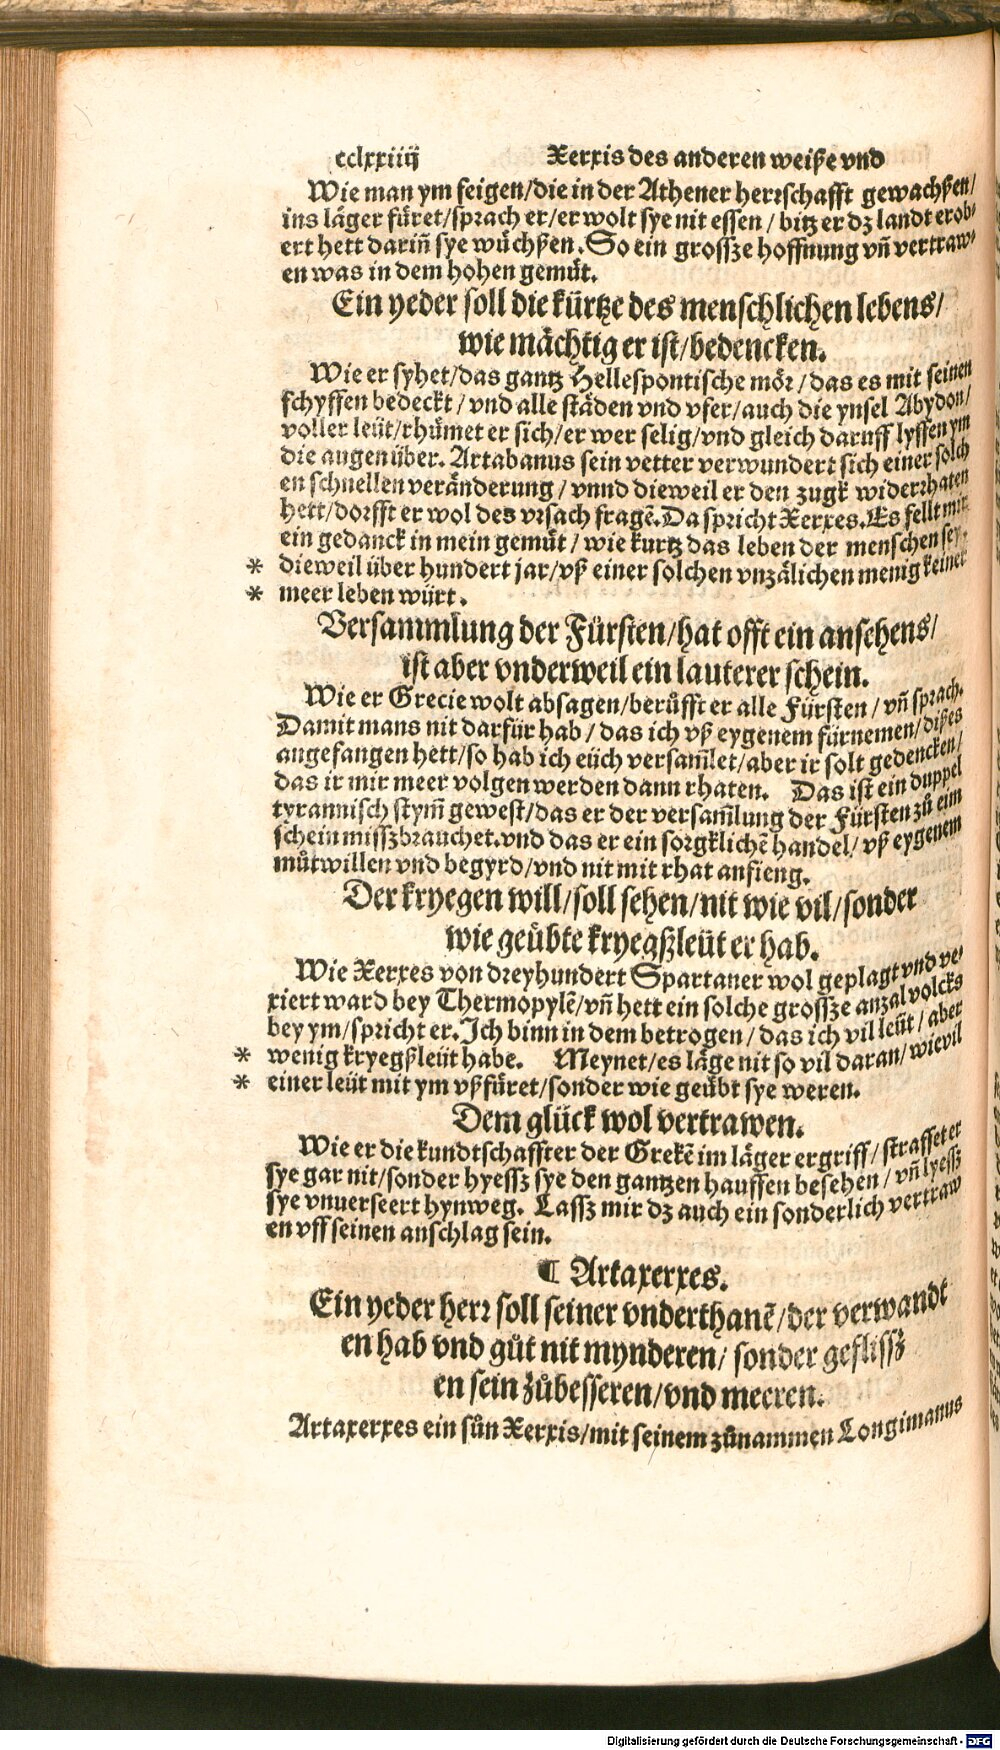 cclxxiiij Xerxis des anderen weiße vnd
Wie man ym feigen/die in der Athener herrschafft gewachßen/
ins läger füret/sprach er/er wolt sye nit essen / bitz er dz landt erob-
ert hett dariñ sye wüchßen. So ein grossze hoffnung vñ vertraw-
en was in dem hohen gemüt.
Ein yeder soll die kürtze des menschlichen lebens/
wie mächtig er ist/bedencken.
Wie er syhet/das gantz Hellespontische mör/das es mit seinen
schyffen bedeckt / vnd alle städen vnd vfer/auch die ynsel Abydon/
voller leüt/rhümet er sich/er wer selig/vnd gleich daruff lyffen ym
die augen über. Artabanus sein vetter verwundert sich einer solch
en schnellen veränderung / vnnd dieweil er den zugk widerrhaten
hett/dorfft er wol des vrsach fragẽ. Da spricht Xerxes. Es fellt mir
ein gedanck in mein gemüt / wie kurtz das leben der menschen sey.
* dieweil über hundert jar/vß einer solchen vnzälichen menig keiner
* meer leben würt.
Versammlung der Fürsten/hat offt ein ansehens/
ist aber vnderweil ein lauterer schein.
Wie er Grecie wolt absagen/berůfft er alle Fürsten / vñ sprach.
Damit mans nit darfür hab / das ich vß eygenem fürnemen/dißes
angefangen hett/so hab ich eüch versam̃let/aber ir solt gedencken/
das ir mir meer volgen werden dann rhaten. Das ist ein duppel
tyrannisch stym̃ gewest/das er der versam̃lung der Fürsten zů eim
schein misszbrauchet.vnd das er ein sorgklichẽ handel/ vß eygenem
můtwillen vnd begyrd/vnd nit mit rhat anfieng.
Der kryegen will/soll sehen/nit wie vil/sonder
wie geübte kryegßleüt er hab.
Wie Xerxes von dreyhundert Spartaner wol geplagt vnd ve-
xiert ward bey Thermopylẽ/vñ hett ein solche grossze anzal volcks
bey ym/spricht er. Ich binn in dem betrogen / das ich vil leüt / aber
* wenig kryegßleüt habe. Meynet/es läge nit so vil daran/wievil
* einer leüt mit ym vßfüret/sonder wie geübt sye weren.
Dem glück wol vertrawen.
Wie er die kundtschaffter der Grekẽ im läger ergriff/straffet er
sye gar nit/sonder hyessz sye den gantzen hauffen besehen / vñ lyessz
sye vnuerseert hynweg. Lassz mir dz auch ein sonderlich vertraw
en vff seinen anschlag sein.
¶ Artaxerxes.
Ein yeder herr soll seiner vnderthanẽ/der verwandt
en hab vnd gůt nit mynderen/ sonder geflissz
en sein zůbesseren/vnd meeren.
Artaxerxes ein sůn Xerxis/mit seinem zůnammen Longimanus
Digitalisierung gefördert durch die Deutsche Forschungsgemeinschaft - DFG